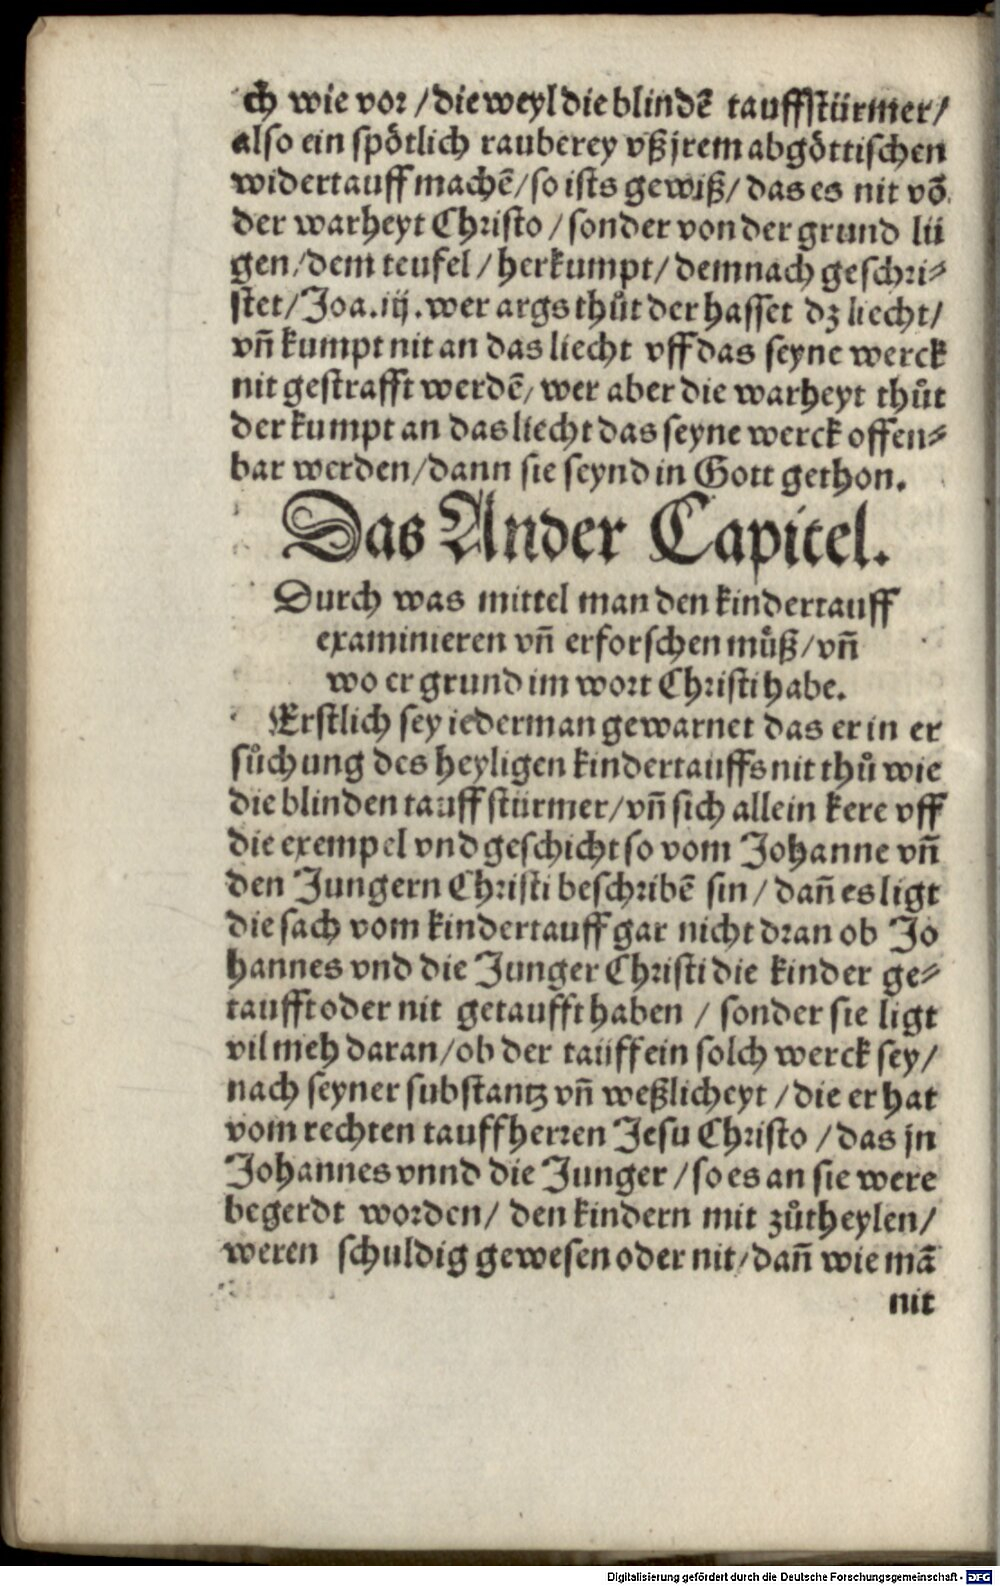 ch wie vor / die weyl die blindē tauffstürmer /
also ein spötlich rauberey vß jrem abgöttischen
widertauff machē / so ists gewiß / das es nit vō
der warheyt Christo / sonder von der grund lü
gen / dem teufel / herkumpt / demnach geschri⸗
stet / Joa. iij. wer args thůt der hasset dz liecht /
vñ kumpt nit an das liecht vff das seyne werck
nit gestrafft werdē / wer aber die warheyt thůt
der kumpt an das liecht das seyne werck offen⸗
bar werden / dann sie seynd in Gott gethon.
Das Ander Capitel.
Durch was mittel man den kindertauff
examinieren vñ erforschen můß / vñ
wo er grund im wort Christi habe.
Erstlich sey iederman gewarnet das er in er
sůchung des heyligen kindertauffs nit thů wie
die blinden tauffstürmer / vñ sich allein kere vff
die exempel vnd geschicht so vom Johanne vñ
den Jungern Christi beschribē sin / dañ es ligt
die sach vom kindertauff gar nicht dran ob Jo
hannes vnd die Junger Christi die kinder ge⸗
taufft oder nit getaufft haben / sonder sie ligt
vil meh daran / ob der tauff ein solch werck sey /
nach seyner substantz vñ weßlicheyt / die er hat
vom rechten tauffherren Jesu Christo / das jn
Johannes vnnd die Junger / so es an sie were
begerdt worden / den kindern mit zůtheylen /
weren schuldig gewesen oder nit / dañ wie mā
nit
Digitalisierung gefördert durch die Deutsche Forschungsgemeinschaft - DFG